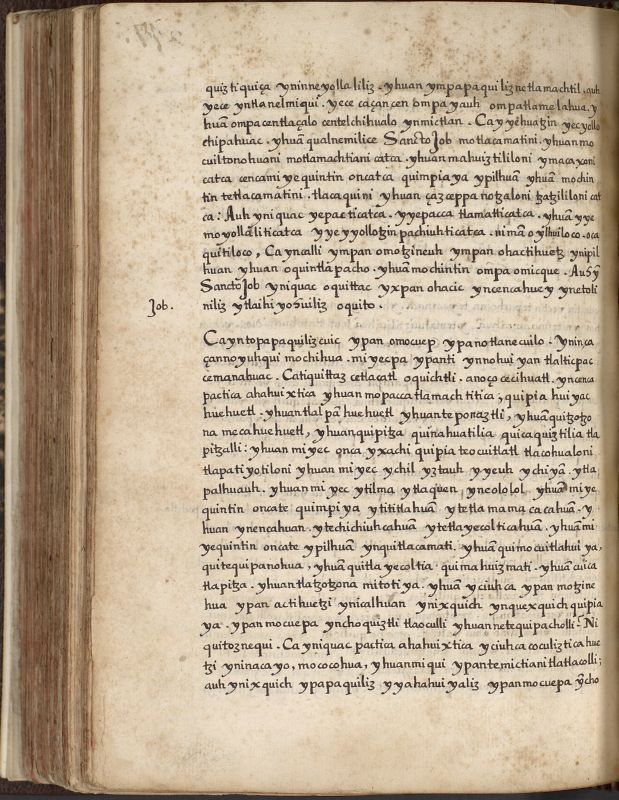 quiztiquiça yninneyollaliliz. yhuan ympapaquiliznetlamachtil. auh
yece yntlanelmiqui. yece caçançen ompayauh ompatlamelahua. y
huā ompacentlaçalo centelchihualo ynmictlan. Cayyehuatzin yecyollo
chipahuac. yhuā qualnemilice Sancto Job motlacamatini. yhuan mo
cuiltonohuani motlamachtiani catca. yhuan mahuiztililoni ymaçaxoni
catca cencamiyequintin oncatca quimpiaya ypilhuā yhuā mochin
tin tetlacamatini. tlacaquini yhuan çaz ceppa notzaloni tzatzililoni cat
ca: Auh yniquac yepacticatca. yyepacca tlamatticatca. yhuā yye
moyollāliticatca yyeyyollotzin pachiuhticatca. niman oylhuiloco. oca
quitiloco, Cayncalli ympan omotzineuh ympan ohactihuetz ynipil
huan yhuan oquintlapacho. yhuā mochintin ompa omicque. Auh y
Sancto Job yniquac oquittac yxpan ohacic yncencahuey ynetoli
Job. niliz ytlaihiyohuiliz oquito.
Cayntopapaquilizcuic ypan omocuep ypanotlanecuilo. yninça
çanno yuhqui mochihua. miyecpa ypanti ynnohuiyan tlalticpac
cemanahuac. Catiquittaz cetlacatl oquichtli. anoço cecihuatl. yncenca
pactica ahahuixtica yhuan mopaccatlamachtitica; quipia huiyac
huehuetl. yhuan tlalpā huehuetl yhuan teponaztli, yhuā quitzotzo
na mecahuehuetl, yhuan quipitza quinahuatilia quicaquiztilia tla
pitzalli: yhuan miyec onca yxachi quipia teocuitlatl tlacohualoni
tlapatiyotiloni yhuan miyec ychil yztauh yyeuh ychiyā. ytla
palhuauh. yhuan miyec ytilma ytlaquen yneololol yhuā miye
quintin oncate quimpiya ytititlahuā ytetlamamacacahuā. y
huan ynencahuan. ytechichiuhcahuan ytetlayecolticahuan. yhuā mi
yequintin oncate ypilhuā ynquitlacamati. yhuā quimocuitlahuiya,
quitequipanohua, yhuan quitlayecoltia quimahuizmati. yhuā cuica
tlapitza. yhuan tlatzotzona mitotiya. yhuā yciuhca ypan motzine
hua ypan actihuetzi ynicalhuan ynixquich ynquexquich quipia
ya. ypan mocuepa ynchoquiztli tlaoculli yhuan netequipacholli. Ni
quitoznequi. Ca yniquac pactica ahahuixtica yciuhca coculizticahue
tzi yninacayo, mococohua, yhuan miqui ypantemictiani tlatlacolli;
auh ynixquich ypapaquiliz yyahahuiyaliz ypanmocuepa yncho